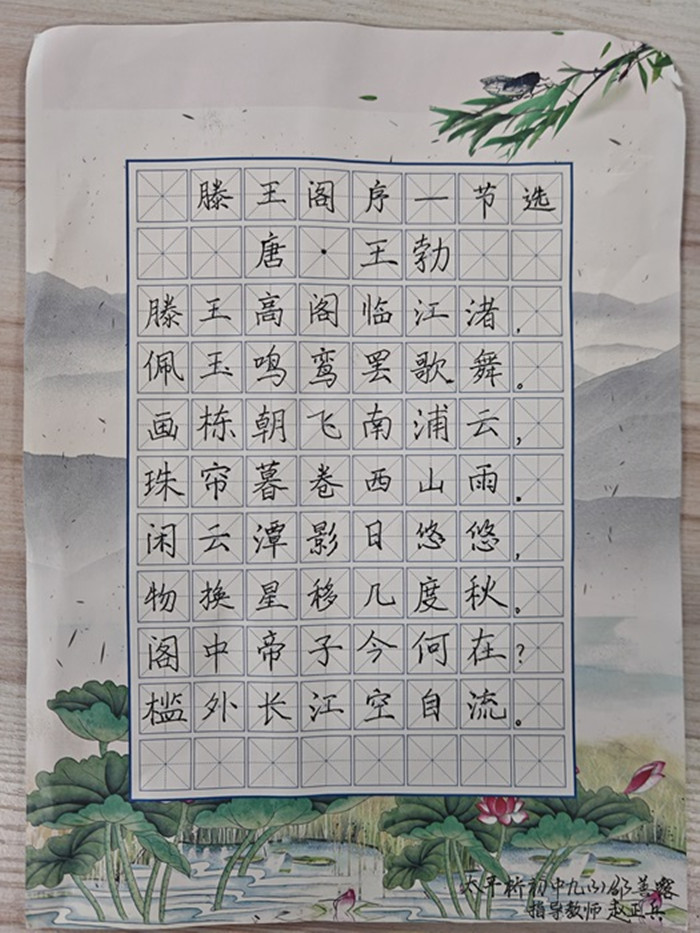 滕王阁序—节选
唐·王勃
滕王高阁临江渚,
佩玉鸣鸾罢歌舞。
画栋朝飞南浦云,
珠帘暮卷西山雨.
闲云潭影日悠悠,
物换星移几度秋。
阁中帝子今何在?
槛外长江空自流。
太平桥初中九(3)邰美蓉
指导教师 赵正兵